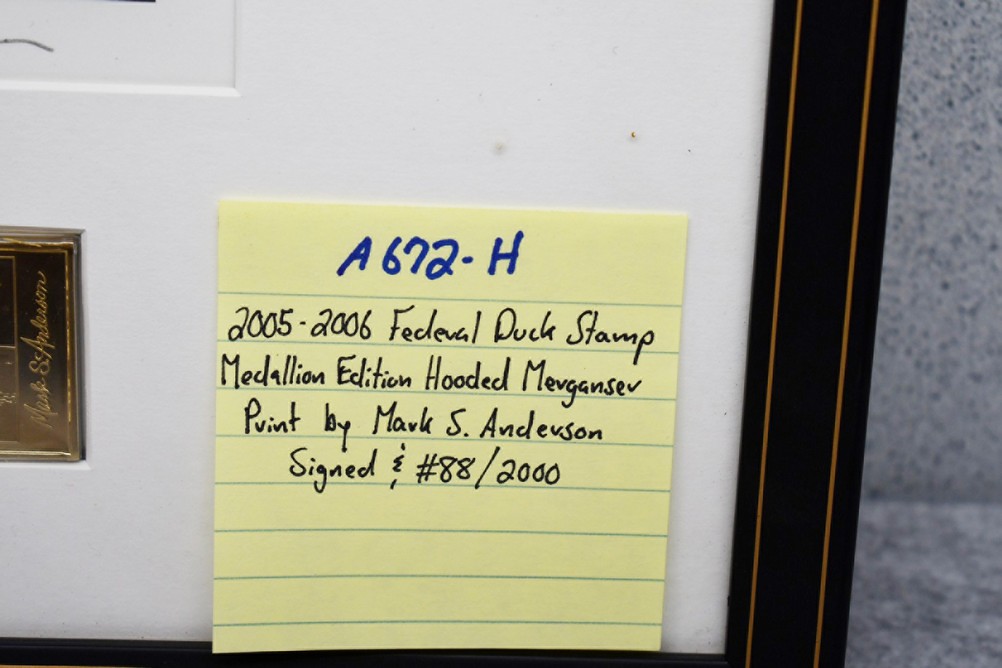 A672-H
2005-2006 Federal Duck Stamp
Medallion Edition Hooded Merganser
Print by Mark S. Anderson
Signed & #88/2000
Mark S. Anderson